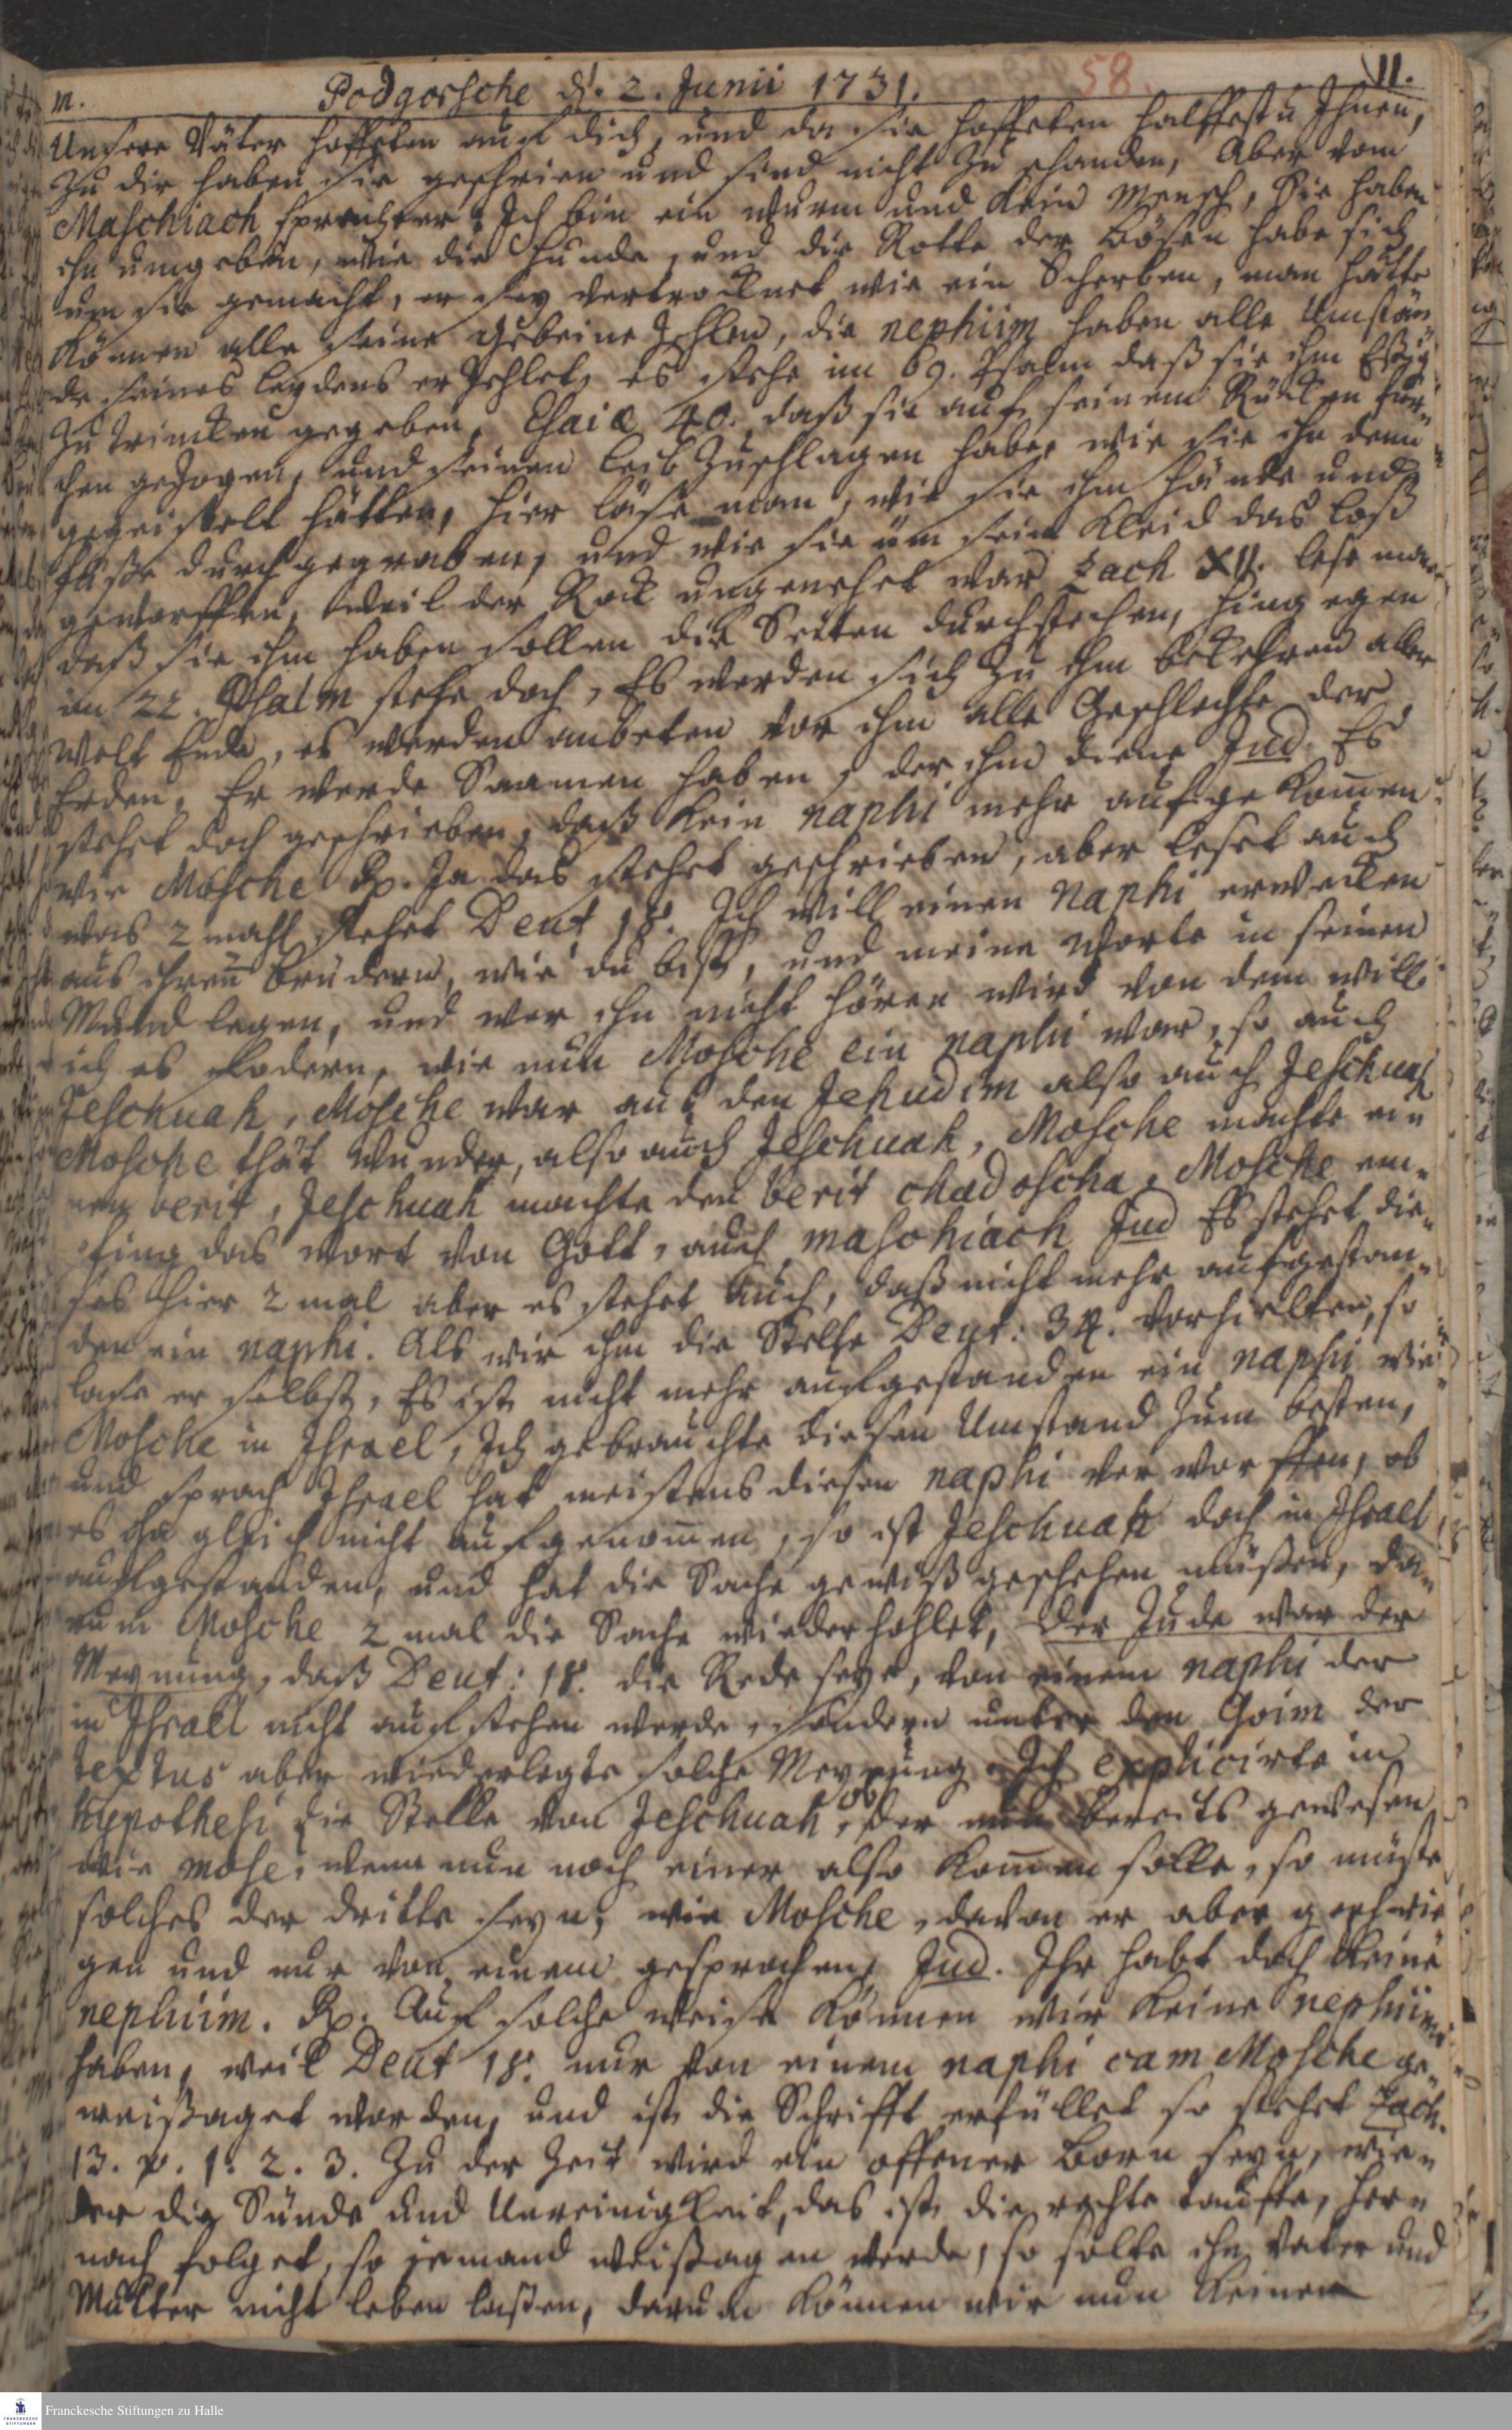 m. Podgorsche d. 2. Junii 1731. 58. 11.
Unsere Väter hoffeten auf dich, und da sie hoffeten halffestu Ihnen,
zu dir haben sie geschrien und sind nicht zu schanden, Aber vom
Maschiach sprach er: Ich bin ein wurm und kein Mensch, Sie haben
ihn umgeben, wie die Hunde, und die Rotte der bösen habe sich
um sie gemacht, er sey vertrocknet wie ein Scherben, man hätte
können alle seine Gebeine zehlen, die nephiim haben alle Umstän
de seines leydens erzehlet, es stehe im 69. Psalm daß sie ihm Eßig
zu trincken gegeben, Esaiæ 40. daß sie auf seinem Rücken fur-
chen gezogen, und seinen leib zuschlagen habe, wie sie ihn denn
gegeisselt hätten, hier läse man, wie sie ihm Hände und
füße durchgegraben, und wie sie üm sein Kleid das loß
geworffen, weil der Rock ungenehet war Zach XII. lese man
daß sie ihm haben sollen die Seiten durchstechen, hingegen
im 22. Psalm stehe doch, Es werden sich zu ihm bekehren aller
welt Ende, es werden anbeten vor ihm alle Geschlechte der
Erden, Er werde Saamen haben, der ihm diene Jud. Es
stehet doch geschrieben, daß kein naphi mehr aufgekom̄en
wie Mosche Rx. Ja das stehet geschrieben, aber leset auch
was 2 mahl stehet Deut 18. Ich will einen Naphi erwecken
aus ihren brüdern, wie du bist, und meine Worte in seinen
Mund legen, und wer ihn nicht hören wird von dem will
ich es fodern, wie nun Mosche ein naphi war, so auch
Jeschuah, Mosche war aus den Jehudim also auch Jeschuah
Mosche thät wunder, also auch Jeschuah, Mosche machte ei
nen berit, Jeschuah machte den berit chadoscha, Mosche em-
fing das wort von Gott, auch maschiach Jud Es stehet die-
ses hier 2 mal aber es stehet auch, daß nicht mehr aufgestan-
den ein naphi. Als wir ihm die Stelle Deut: 34. vorhielten, so
lase er selbst, Es ist nicht mehr aufgestanden ein naphi wie
Mosche in Israel, Ich gebrauchte diesen Umstand zum besten,
und sprach Israel hat meistens diesen naphi verworffen, ob
es ihn gleich nicht aufgenom̄en, so ist Jeschuah doch in Israel
aufgestanden, und hat die Sache gewiß geschehen müßen, da-
rum Mosche 2 mal die Sache wiederhohlet, Der Jude war der
Meynung, daß Deut: 18. die Rede seye, von einem naphi der
in Israel nicht aufstehen werde, sondern unter den Goim der
textus aber wiederlegte solche Meynung. Ich explicirte in
hypothesi die Stelle von Jeschuah, ob der bereits gewesen
wie mose, wenn nun noch einer also kom̄en solle, so müste
solches der dritte seyn, wie Mosche, davon er aber geschwie
gen und nur von einem gesprochen, Jud. Ihr habt doch keine
nephiim. Rx. Auf solche weise können wir keine nephiim
haben, weil Deut 18. nur von einem naphi cam Mosche ge-
weißaget worden, und ist die Schrifft erfüllet so stehet Zach.
13. v. 1. 2. 3. Zu der Zeit wird ein offener born seyn, wie-
der die Sünde und Unreinigkeit, das ist die rechte tauffe, her-
nach folget, so jemand weißagen werde, so solte ihn Vater und
Mutter nicht leben laßen, darum können wir nun keinen
Franckesche Stiftungen zu Halle